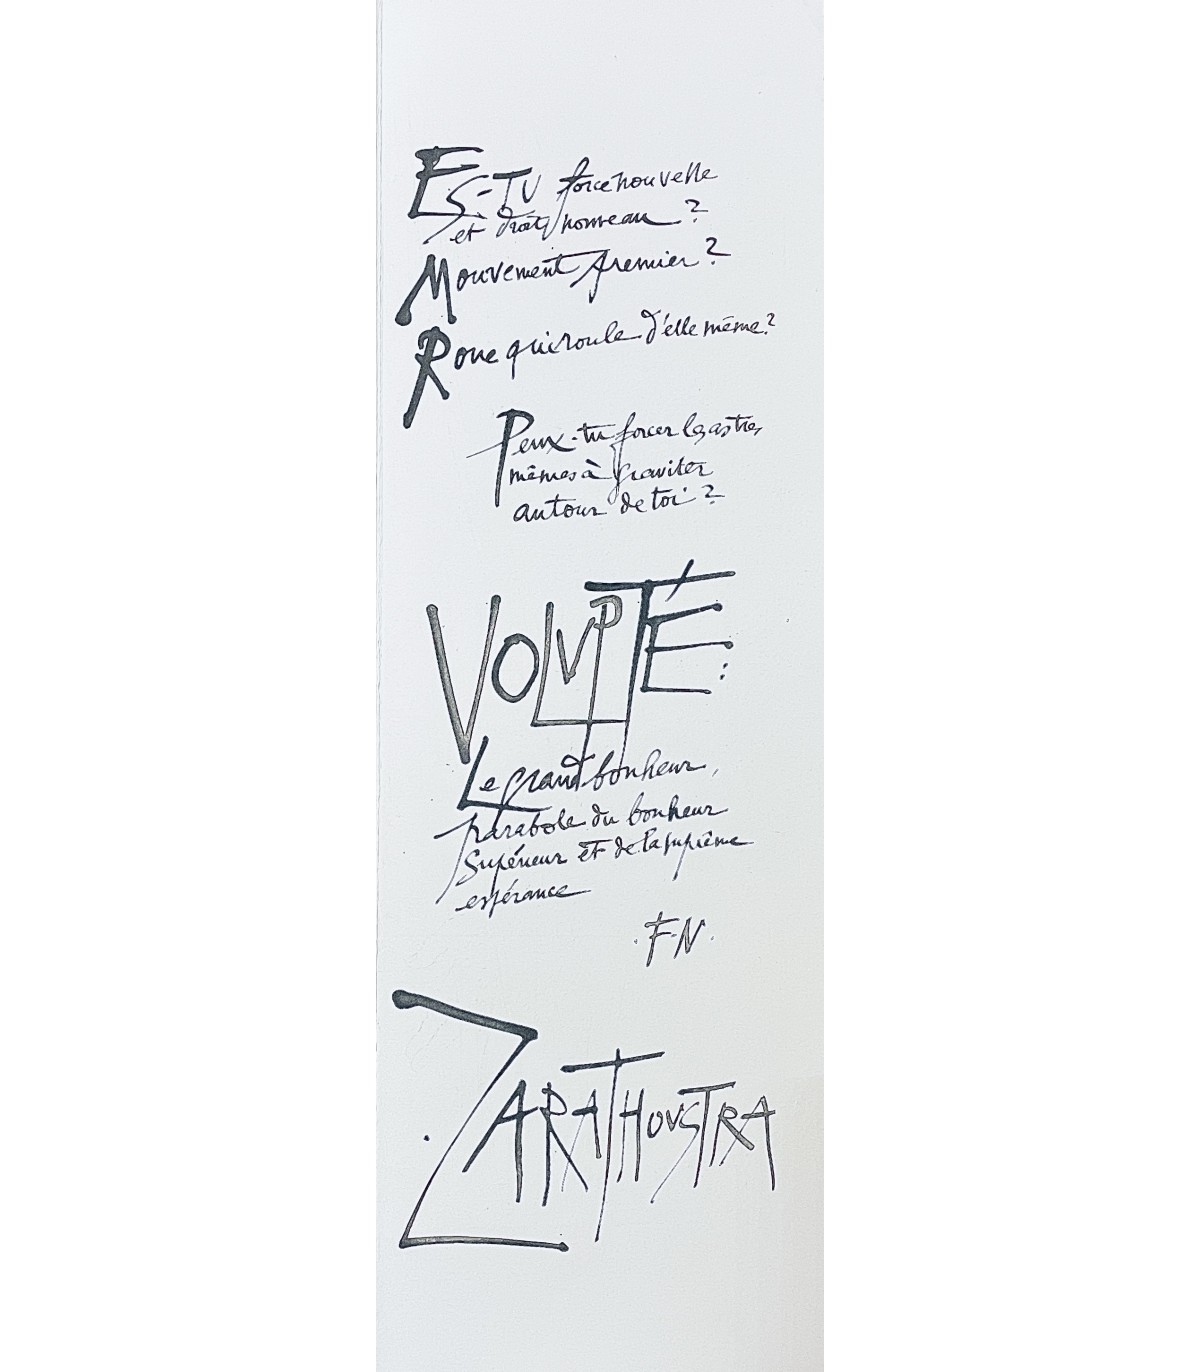 ES-TU force nouvelle
et droit nouveau ?
Mouvement premier ?
Roue qui roule d'elle même ?
Peux-tu forcer les astres
mêmes à graviter
autour de toi ?
VOLUPTÉ :
Le grand bonheur,
parabole du bonheur
Supérieur et de la suprême
espérance
.F.N.
ZARATHOUSTRA